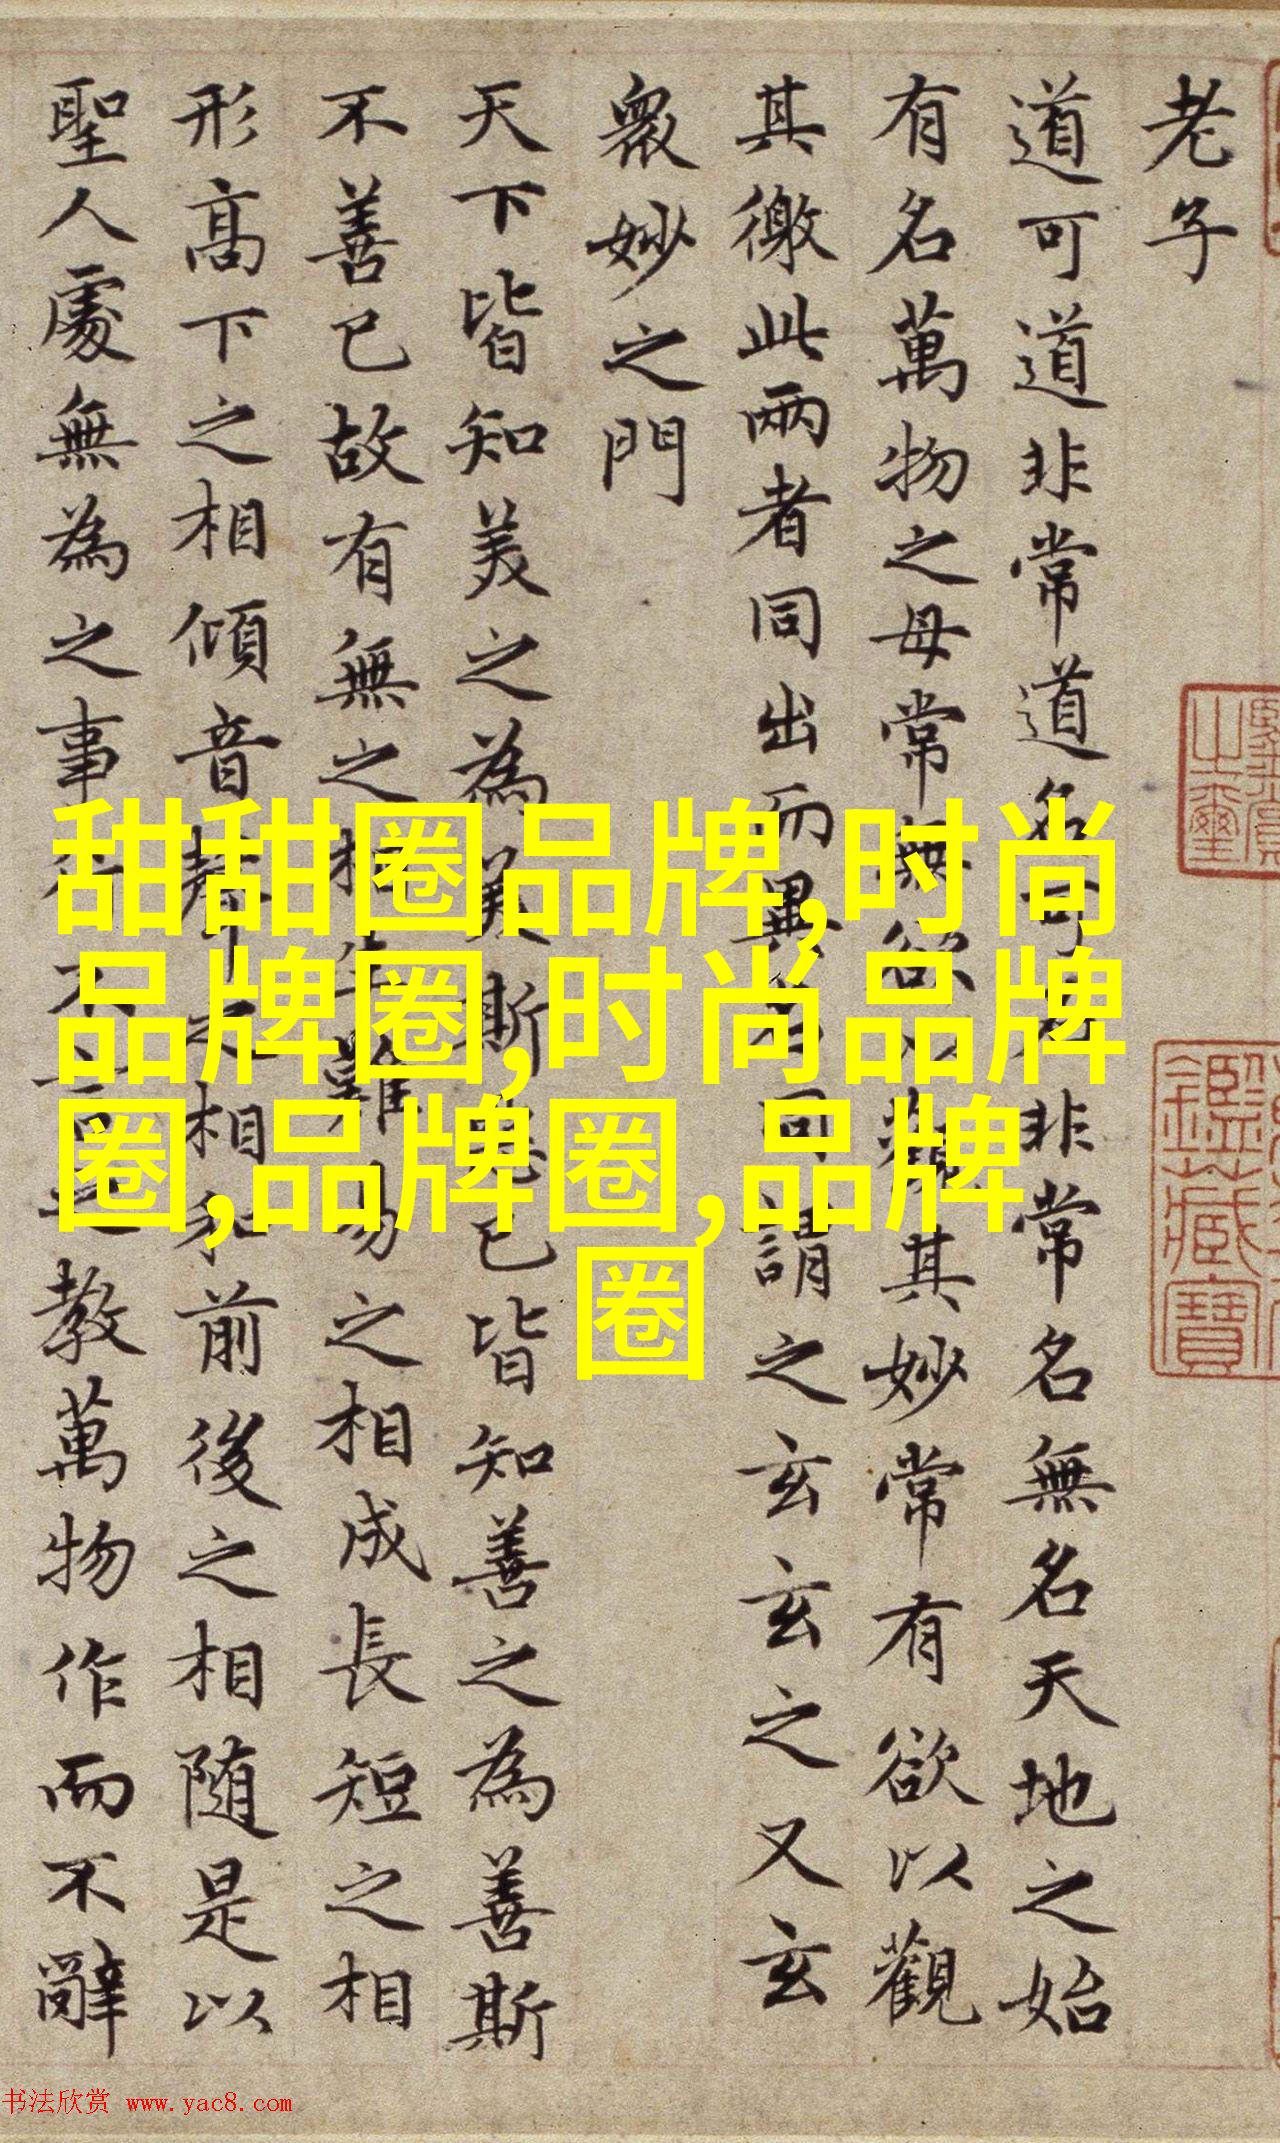 老子
道可道非常道名可名非常名無名天地之始
有名萬物之母常無欲以觀其妙常有欲以觀
其徼此兩者同出而異名同謂之玄玄之又玄
衆妙之門
天下皆知美之為美斯惡已皆知善之為善斯
不善已故有無之相生難易之相成長短之相
形高下之相傾音聲之相和前後之相随是以
聖人處無為之事行不言之教萬物作而不辭
甜甜圈品牌,时尚
品牌圈,时尚品牌
圈,品牌圈,品牌
圈
鑑藏寶
书法欣赏 www.yac8.com